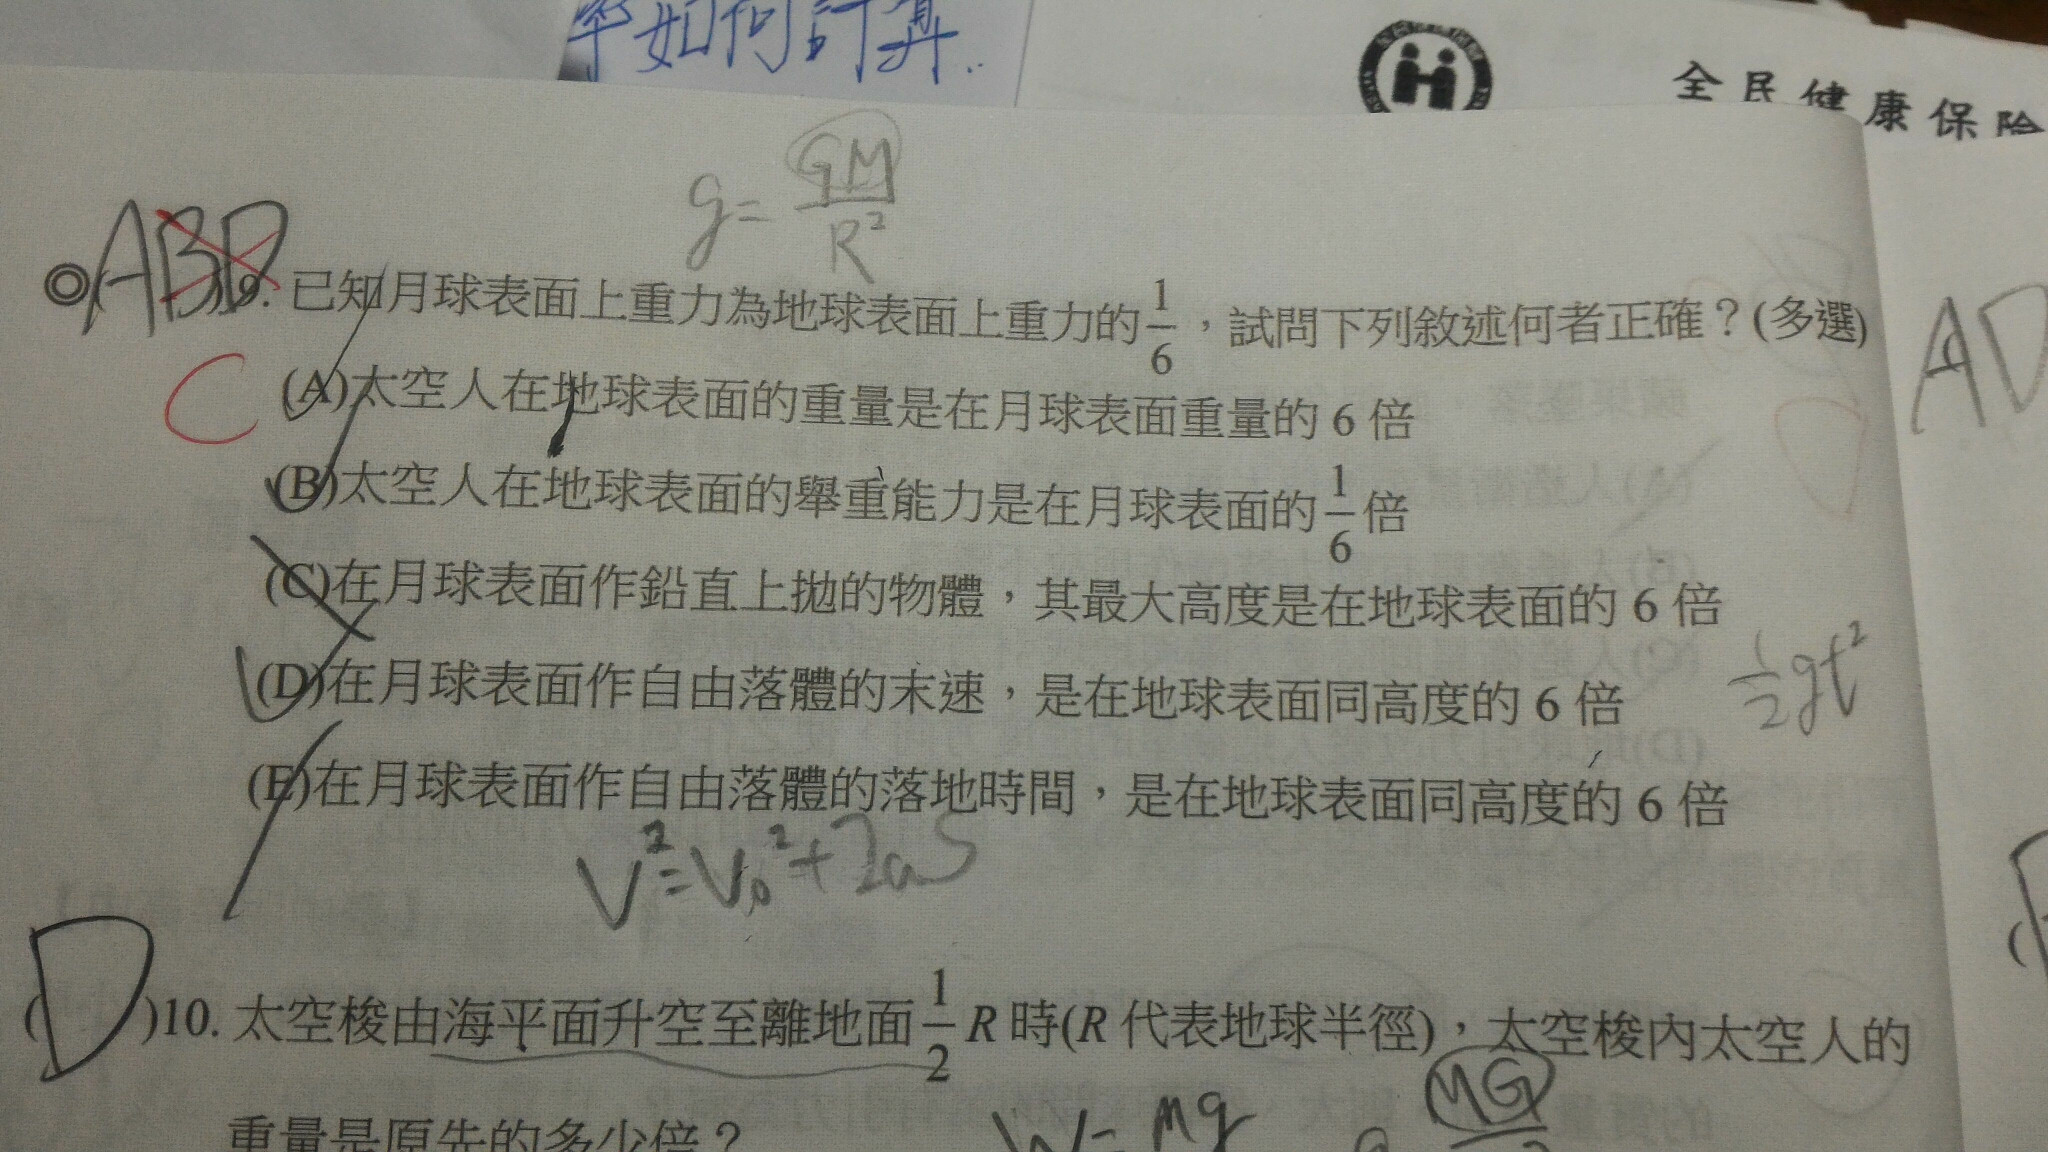 率如何計算..
全民健康保險
g = GM/R²
ABD
◎( )9. 已知月球表面上重力為地球表面上重力的1/6，試問下列敘述何者正確？(多選)
AD
C
(A)太空人在地球表面的重量是在月球表面重量的 6 倍
(B)太空人在地球表面的舉重能力是在月球表面的1/6倍
(C)在月球表面作鉛直上拋的物體，其最大高度是在地球表面的 6 倍
(D)在月球表面作自由落體的末速，是在地球表面同高度的 6 倍
½gt²
(E)在月球表面作自由落體的落地時間，是在地球表面同高度的 6 倍
V²=V₀²+2aS
(D)10. 太空梭由海平面升空至離地面1/2 R 時(R 代表地球半徑)，太空梭內太空人的
重量是原先的多少倍？
W = mg
MG